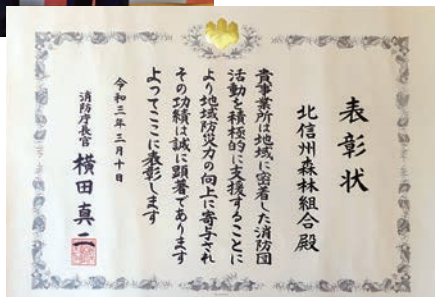 表彰状
北信州森林組合殿
貴事業所は地域に密着した消防団
活動を積極的に支援することに
より地域防災力の向上に寄与され
その功績は誠に顕著であります
よってここに表彰します
令和三年三月十日
消防庁長官 横田真二